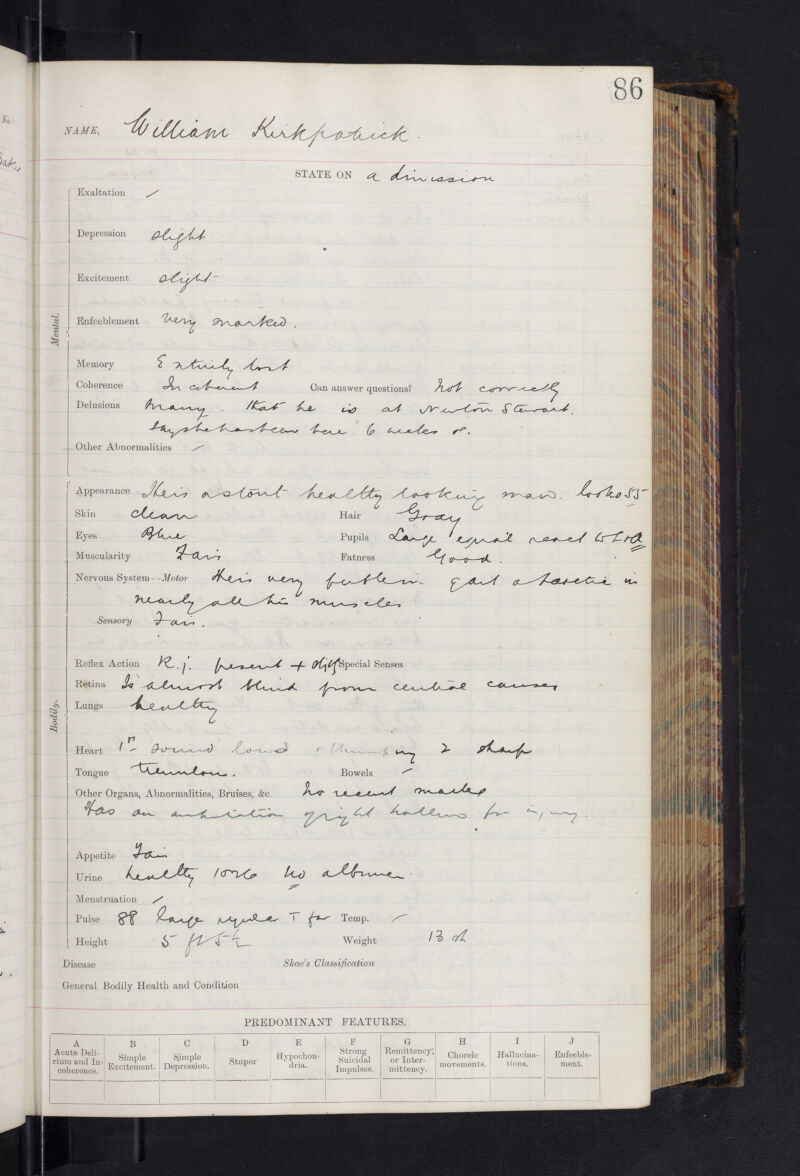 86
NAME, William Kirkpatrick.
STATE ON admission
Mental.
Exaltation /
Depression slight
Excitement slight
Enfeeblement very marked.
Memory Entirely lost
Coherence Incoherent Can answer questions? not correctly
Delusions Many. that he is at Newton Stewart.
Says he has been here 6 weeks &c.
Other Abnormalities /
Bodily.
Appearance He is a stout healthy looking man. looks 55
Skin clean Hair Gray
Eyes Blue Pupils Large equal react to L & A
Muscularity Fair Fatness Good.
Nervous System—Motor He is very feeble in gait ataxic in
nearly all his muscles
Sensory Fair.
Reflex Action K.j. present + Special Senses
Retina Is almost blind from central causes
Lungs healthy
Heart 1st sound loud & thumping 2 sharp
Tongue tremulous. Bowels /
Other Organs, Abnormalities, Bruises, &c. No recent marks
Has an amputation of right hallux for injury.
Appetite Fair
Urine healthy 1026 no albumen
Menstruation /
Pulse 88 large regular T fair Temp. /
Height 5 ft 5½ Weight 13 st
Disease Skae's Classification
General Bodily Health and Condition
PREDOMINANT FEATURES.
A B C D E F G H I J
Acute Delirium and Incoherence. Simple Excitement. Simple Depression. Stupor Hypochondria. Strong Suicidal Impulses. Remittency, or Intermittency. Choreic movements. Hallucinations. Enfeeblement.